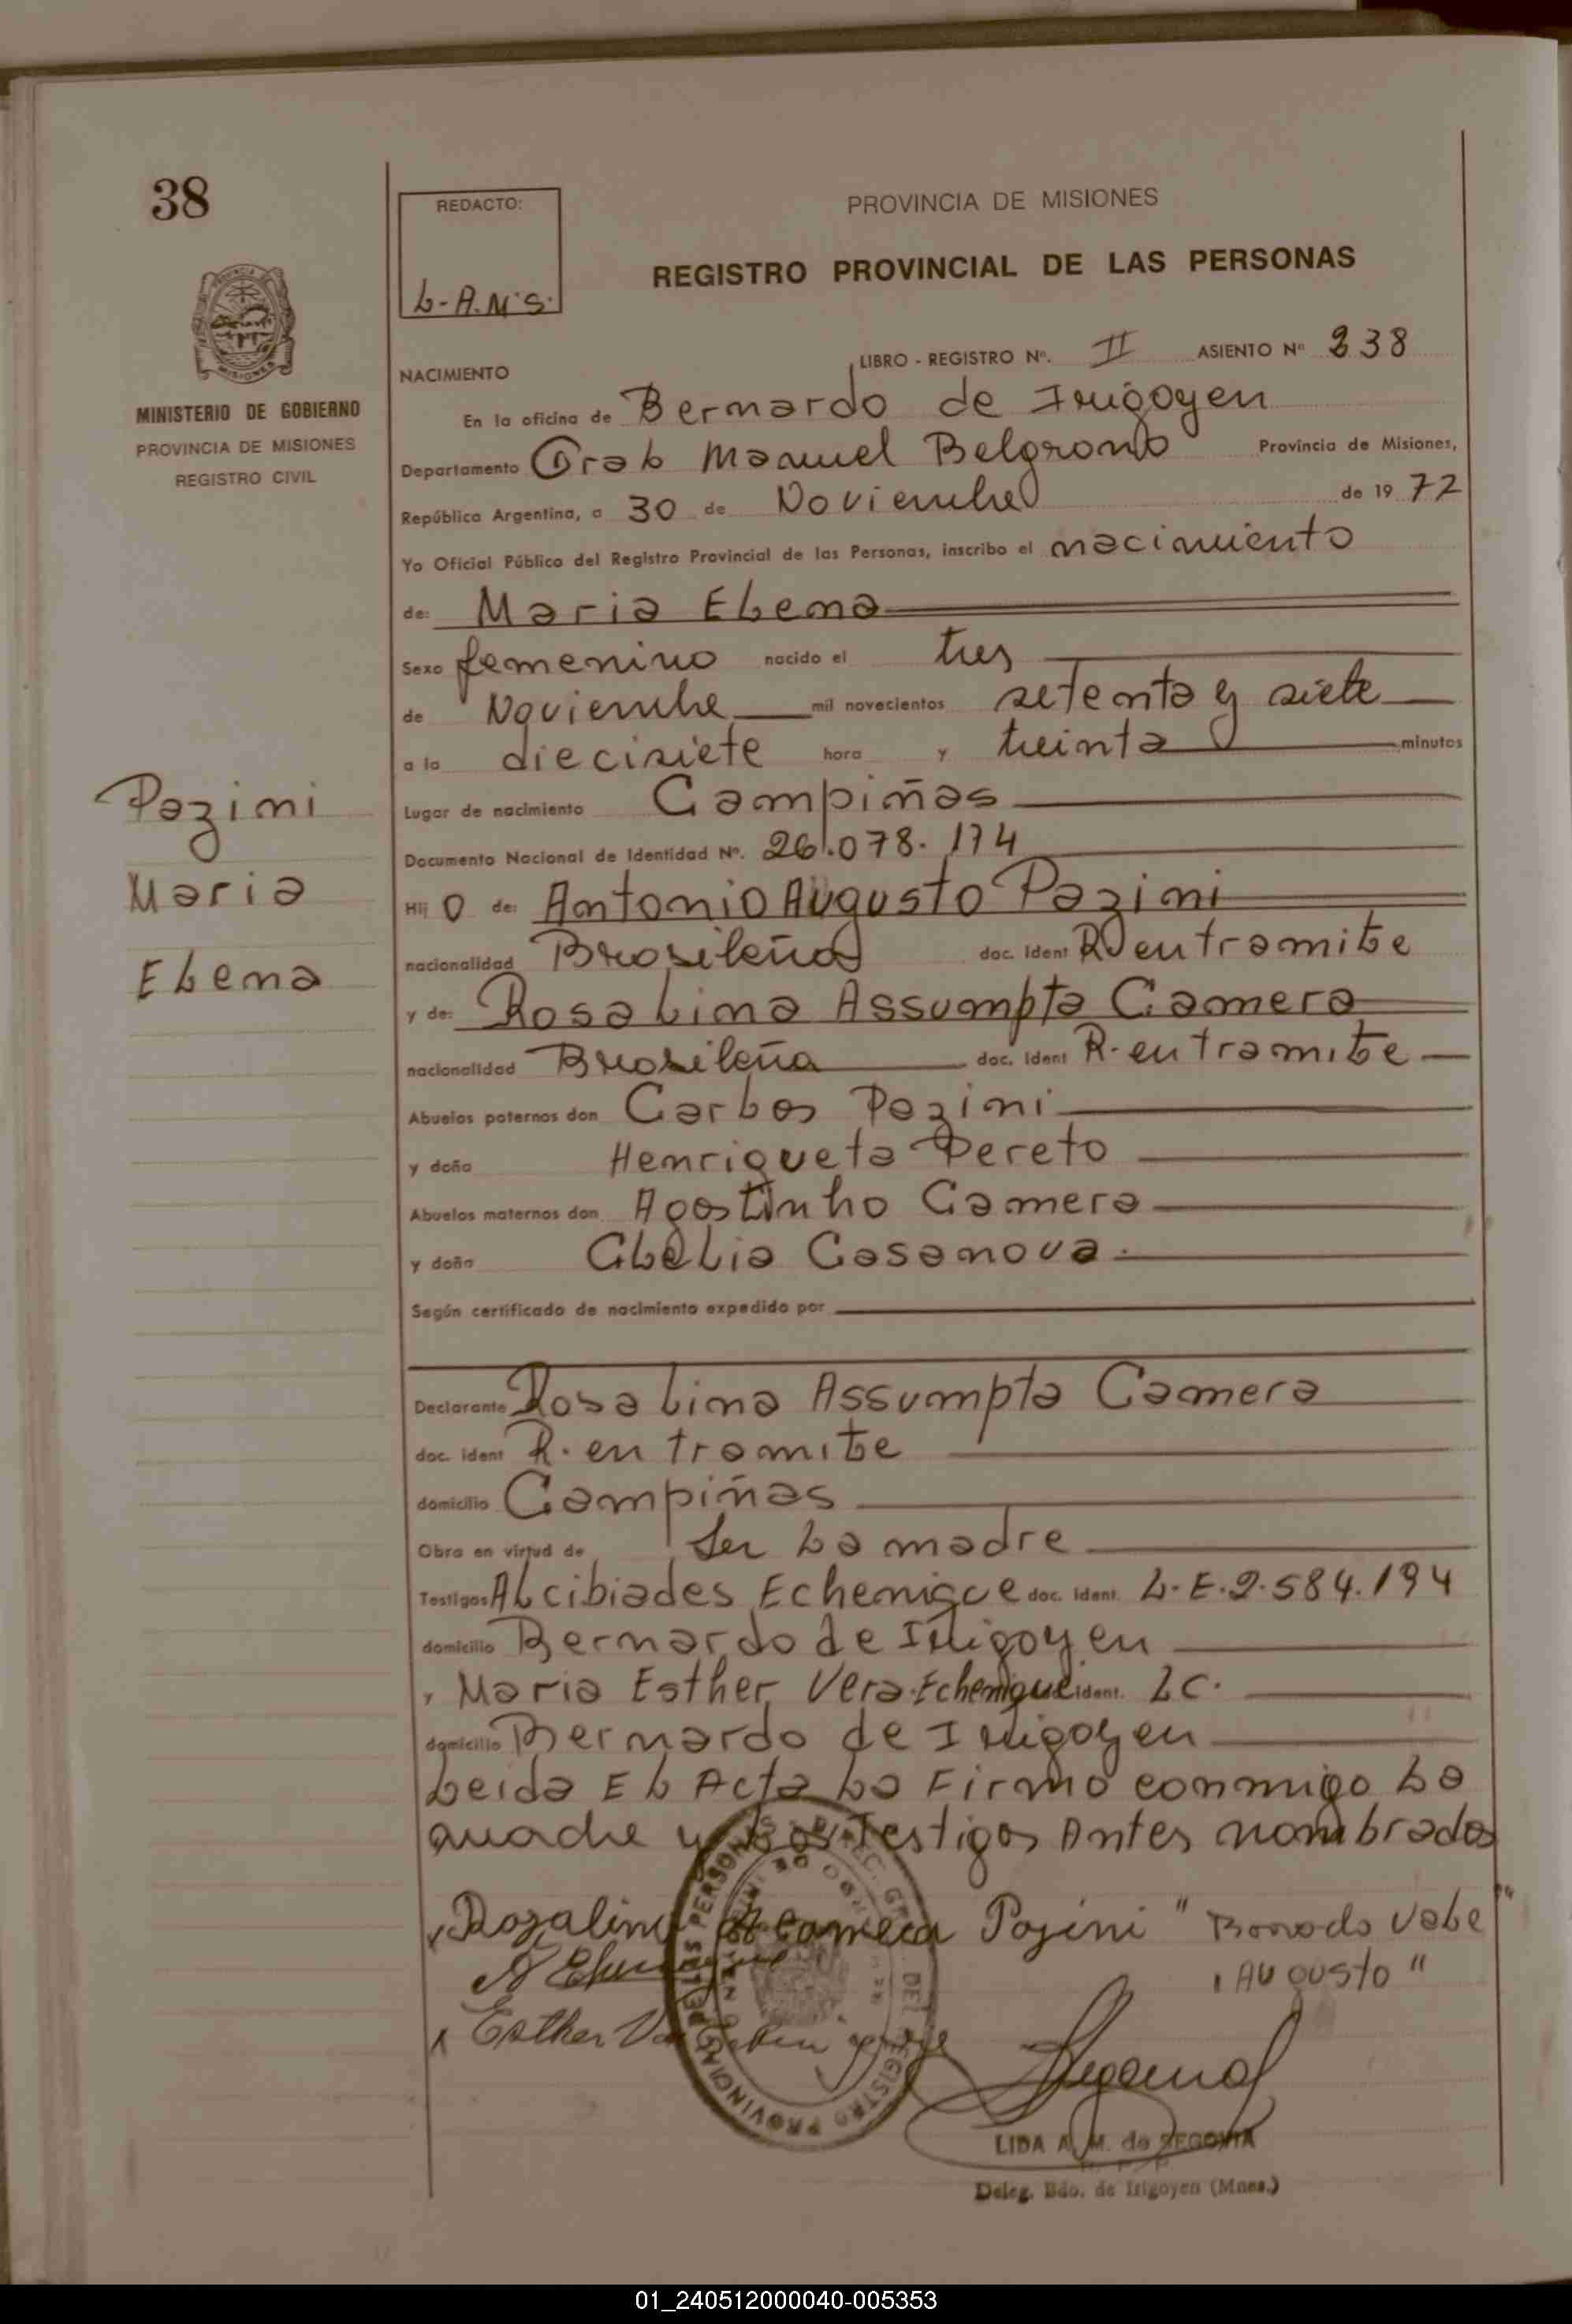 38
REDACTO:
L-A.M.S.
PROVINCIA DE MISIONES
REGISTRO PROVINCIAL DE LAS PERSONAS
MINISTERIO DE GOBIERNO
PROVINCIA DE MISIONES
REGISTRO CIVIL
NACIMIENTO
LIBRO - REGISTRO Nº. II ASIENTO Nº 238
En la oficina de Bernardo de Irigoyen
Departamento Gral Manuel Belgrano Provincia de Misiones,
República Argentina, a 30 de Noviembre de 19 77
Yo Oficial Público del Registro Provincial de las Personas, inscribo el nacimiento
de: Maria Elena
Sexo femenino nacido el tres
de Noviembre mil novecientos setenta y siete
a la diecisiete hora y treinta minutos
Pazini
Maria
Elena
Lugar de nacimiento Campiñas
Documento Nacional de Identidad Nº. 26.078.174
Hij o de: Antonio Augusto Pazini
nacionalidad Brasileña doc. ident R en tramite
y de: Rosalina Assumpta Camera
nacionalidad Brasileña doc. ident R. en tramite
Abuelos paternos don Carlos Pazini
y doña Henriqueta Pereto
Abuelos maternos don Agostinho Camera
y doña Clelia Casanova.
Según certificado de nacimiento expedido por
Declarante Rosalina Assumpta Camera
doc. ident R. en tramite
domicilio Campiñas
Obra en virtud de Ser la madre
Testigos Alcibiades Echenique doc. ident. L.E.2.584.194
domicilio Bernardo de Irigoyen
y Maria Esther Vera Echenique ident. LC.
domicilio Bernardo de Irigoyen
Leida El Acta La Firmo conmigo La
madre y Los Testigos Antes nombrados
Rozalina A Camera Pazini " Borrado Vale "
"AUgUsto"
Esther
LIDA A. M. de SEGOVIA
Deleg. Bdo. de Irigoyen (Mnes.)
01_240512000040-005353